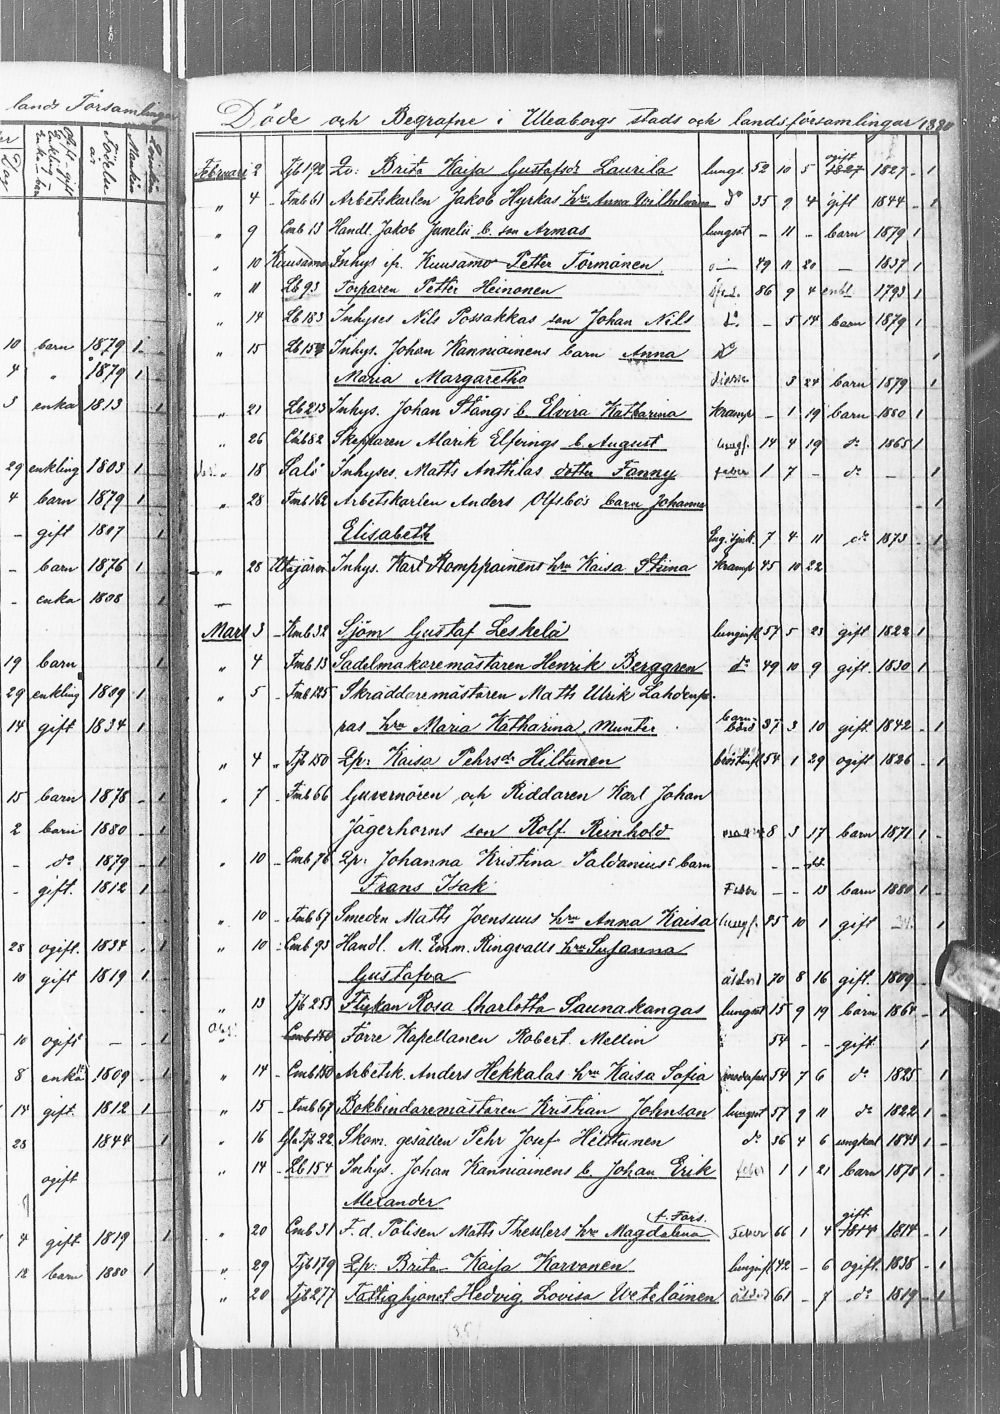 lands Församlinga
Dag
Ogift, gift
Enkling
Födelse
år
Mankön
Qvinkön
10 barn 1879 1
4 " 1879 1
3 enka 1813 1
29 enkling 1803 1
4 barn 1879 1
- gift 1807 1
- barn 1876 1
- enka 1808 1
19 barn 1
29 enkling 1809 1
14 gift 1834 1
15 barn 1878 - 1
2 barn 1880 - 1
- do 1879 - 1
- gift. 1812 1
28 ogift. 1834 - 1
10 gift 1819 1
10 ogift - - 1
8 enka 1809 - 1
14 gift 1812 1
28 1844 - 1
ogift
4 gift 1819 1
12 barn 1880 1
Döde och Begrafne i Uleåborgs stads och lands församlingar 1880
Februari 2 Tjb 192 Qv: Brita Kaisa Gustafsdr Laurila lungs. 52 10 5 ogift 1827 - 1
" 4 Fmb 61 Arbetskarlen Jakob Hyrkas hru Anna Wilhelmina do 35 9 4 gift 1844 - 1
" 9 Cmb 13 Handl. Jakob Junelii b. son Armas lungsot - 11 - barn 1879 1
" 10 Kuusamo Inhys ifr. Kuusamo Petter Törmänen 49 11 20 - 1837 1
" 11 Lb 93 Torparen Petter Heinonen 86 9 4 enkl 1793 1
" 14 Lb 183 Inhyses Nils Possakkas son Johan Nils do - 5 14 barn 1879 1
" 15 Lb 154 Inhys. Johan Kanniainens barn Anna 1
Maria Margaretha 3 24 barn 1879 1
" 21 Lb 213 Inhys. Johan Stångs b. Elvira Katharina kramp - 1 19 barn 1880 1
" 26 Cmb 82 Skepparen Alarik Elfvings b. August lungf. 14 4 19 do 1865 1
" 18 Salo Inhyses Matts Anthilas dotter Fanny feber 1 7 - do - 1
" 28 Fmb 162 Arbetskarlen Anders Olfsbos barn Johanna - 1
Elisabeth Eng. sjuk. 7 4 11 do 1873 - 1
" 28 Utajärvi Inhys. Karl Komppainens hru Kaisa Stiina kramp 45 10 22
Mars 3 Kmb 32 Sjöm Gustaf Leskelä lunginfl 57 5 23 gift 1822 1
" 4 Fmb 13 Sadelmakaremästaren Henrik Berggren do 49 10 9 gift. 1830 1
" 5 Fmb 125 Skräddaremästaren Matts Ulrik Lahdenpe-
ras hru Maria Katharina Munter barnsbörd 37 3 10 gift 1842 - 1
" 4 Tjb 150 Qp: Kaisa Pehrsdr Hiltunen bröstinfl 54 1 29 ogift 1826 - 1
" 7 Fmb 66 Guvernören och Riddaren Karl Johan
Jägerhorns son Rolf Reinhold 8 3 17 barn 1871 1
" 10 Cmb 76 Qp: Johanna Kristina Paldanius's barn
Frans Isak Feber - - 13 barn 1880 1
" 10 Fmb 67 Smeden Matts Joensuus hru Anna Kaisa lungf. 85 10 1 gift 1
" 10 Cmb 93 Handl. M. Emm. Ringvalls hru Susanna
Gustafva ålderd 70 8 16 gift. 1809 - 1
" 13 Tjb 253 Flickan Rosa Charlotta Saunakangas lungsot 15 9 19 barn 1864 - 1
Cmb 150 Förre Kapellanen Robert Mellin 54 - - gift 1
" 14 Cmb 150 Arbetsk. Anders Hekkalas hru Kaisa Sofia 54 7 6 do 1825 1
" 15 Fmb 67 Bokbindaremästaren Kristian Johnson lungsot 57 9 11 do 1822 1
" 16 Tjb 22 Skom. gesällen Pehr Josef Hiltunen do 36 4 6 ungkarl 1843 1
" 14 Lb 154 Inhys. Johan Kanniainens b. Johan Erik feber 1 1 21 barn 1878 1
Alexander
" 20 Cmb 31 F. d. Polisen Matts Thesslers hru Magdalena f. Fors. Feber 66 1 4 gift 1814 - 1
" 29 Tjb 179 Qp: Brita Kaisa Karvonen lunginfl 42 - 6 ogift. 1838 - 1
" 20 Tjb 277 Fattighjonet Hedvig Lovisa Weteläinen ålderd 61 - 7 do 1819 - 1